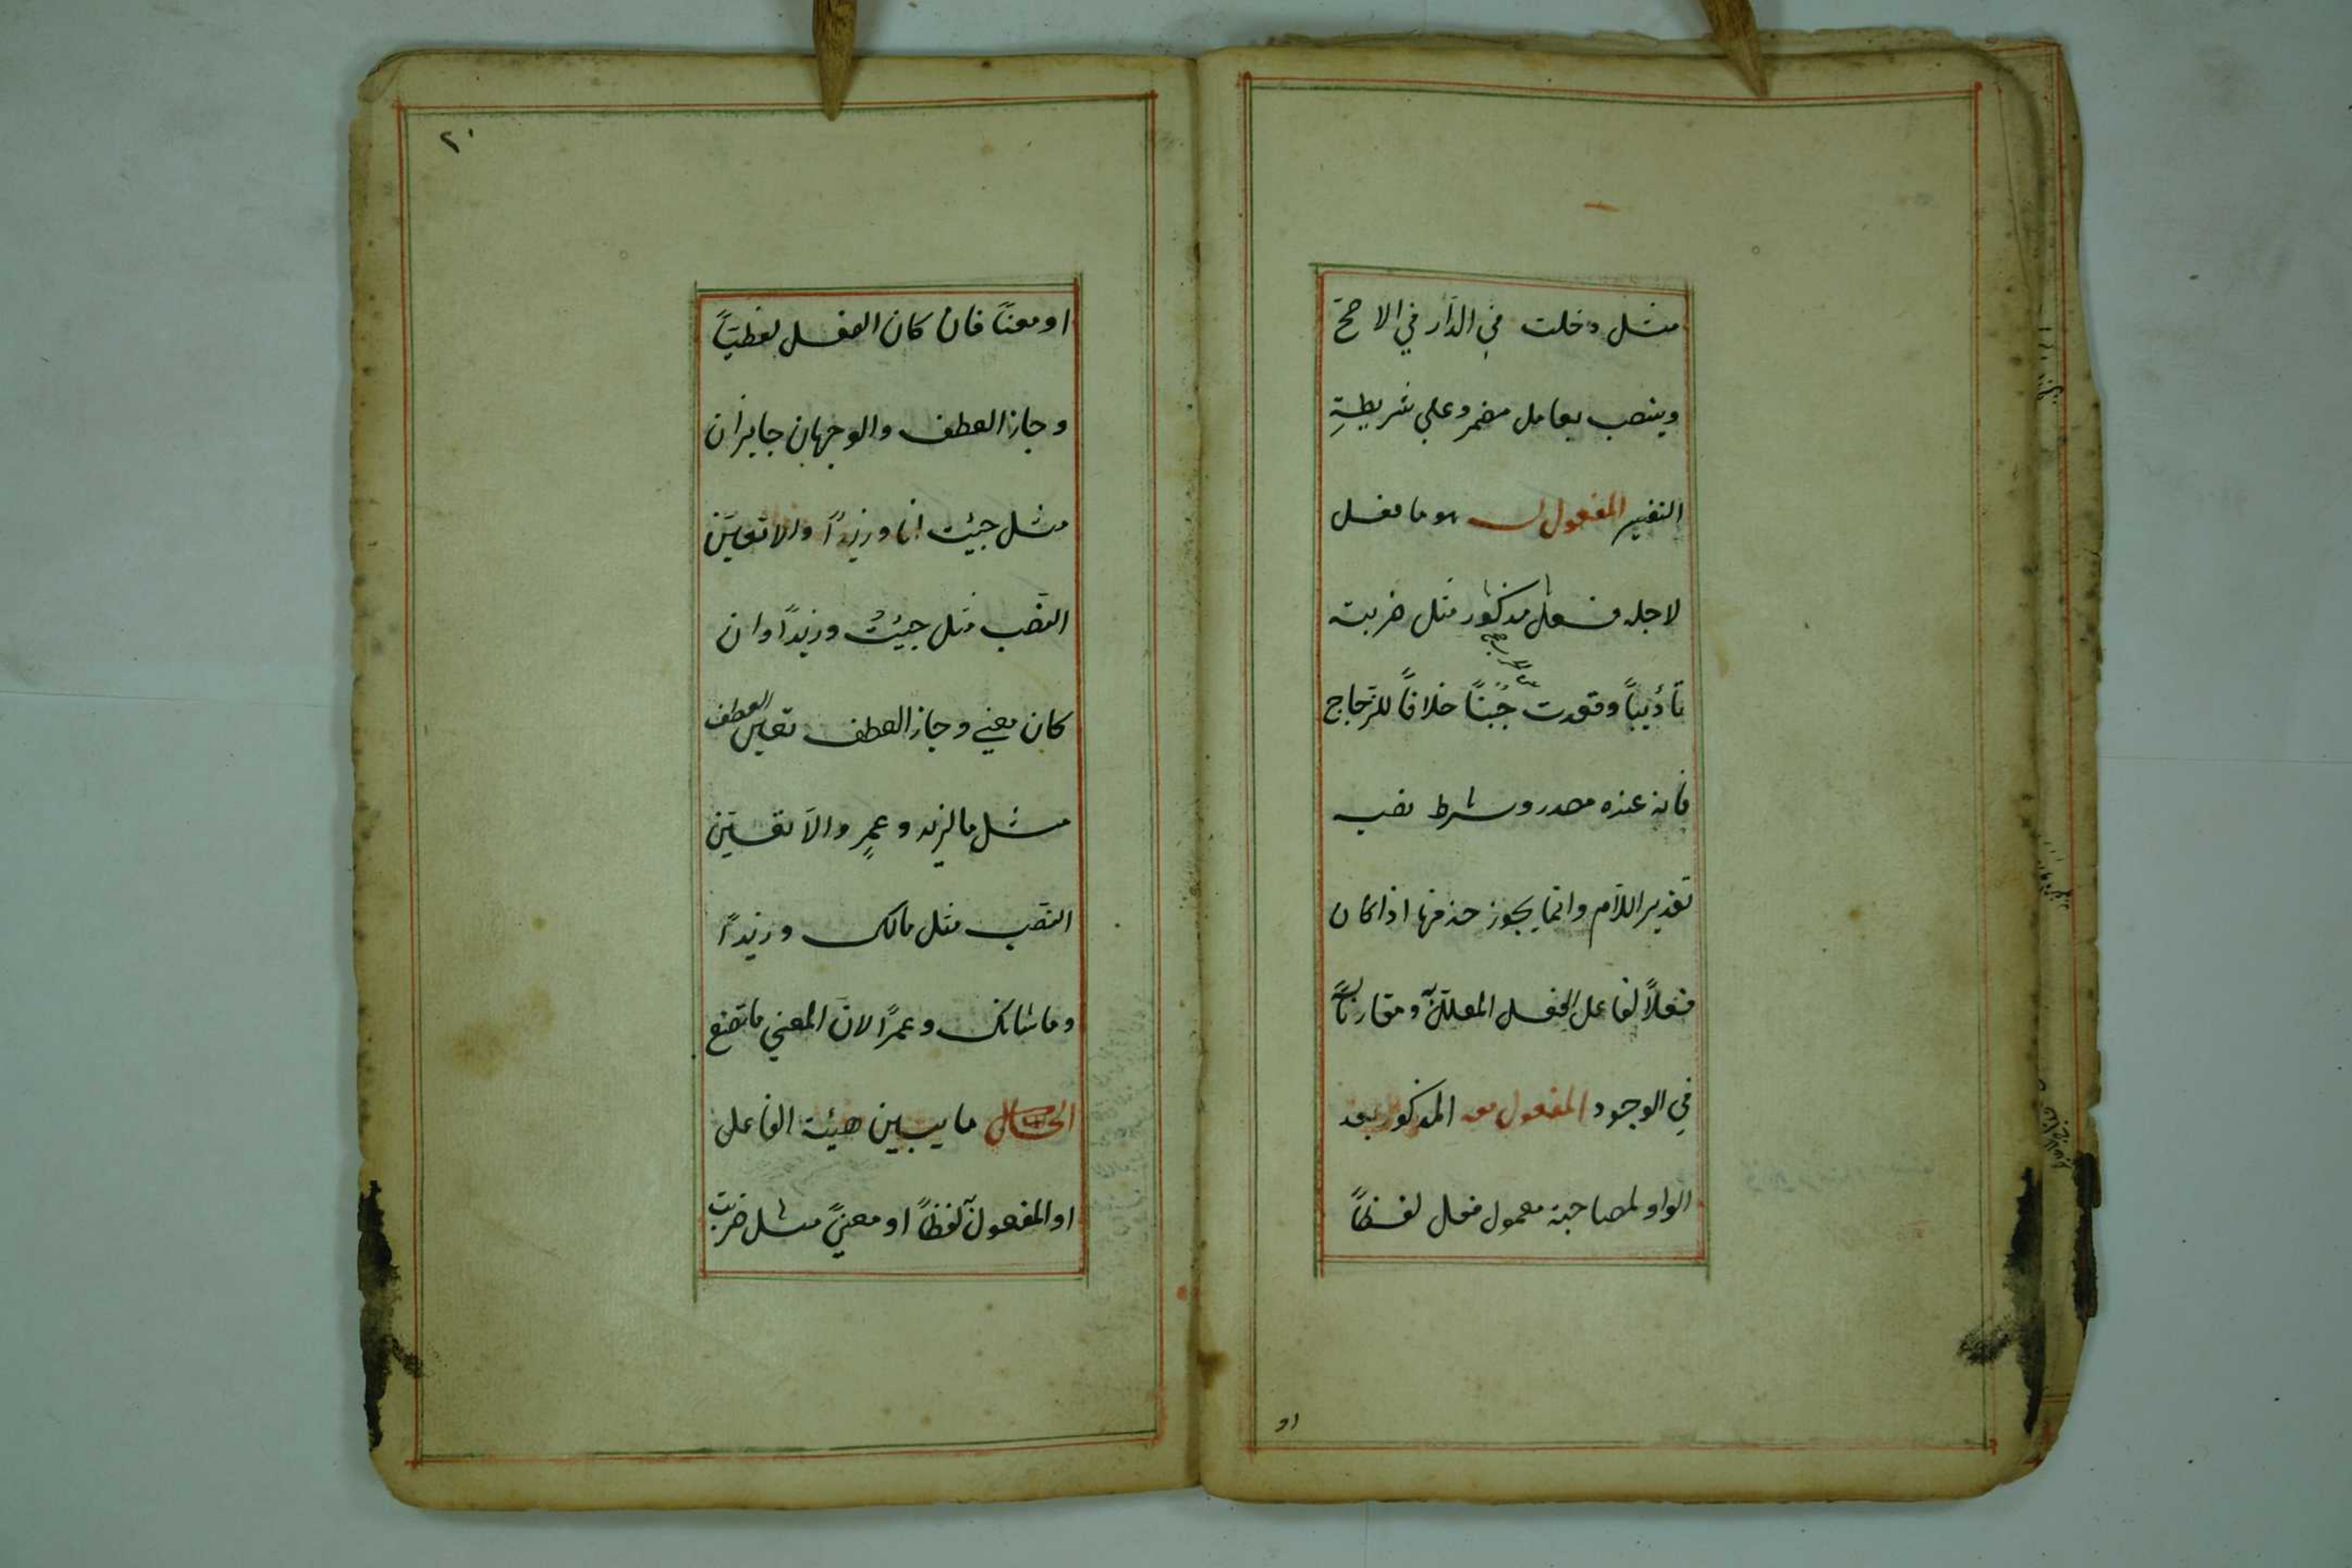 مثل دخلت في الدّار في الاصحّ
وينصب بعامل مضمر وعلي شريطةِ
التفسير المفعول له هو ما فعل
لاجله فعل مذكور مثل ضربته
تأديباً وقعدت جُبناً خلافاً للزّجاج
فانه عنده مصدر وشرط نصبه
تقدير اللاّم وانما يجوز حذفها اذا كان
فعلاً لفاعل الفعل المعلّل ومقارناً له
في الوجود المفعول معه المذكور بعد
الواو لمصاحبة معمول فعل لفظاً
او
٢٠
او معناً فان كان الفعل لفظيّاً
وجاز العطف والوجهان جايزان
مثل جيئت انا وزيداً والا تعيّن
النصب مثل جيئتُ وزيداً وان
كان معني وجاز العطف تعين العطف
مثل ما لزيد وعمرٍ والاّ تعيّن
النصب مثل مالك وزيداً
وما شانك وعمرًا لانّ المعني ما تصنع
الحال ما يبين هيئة الفاعل
او المفعول لفظاً او معنيً مثل ضربت